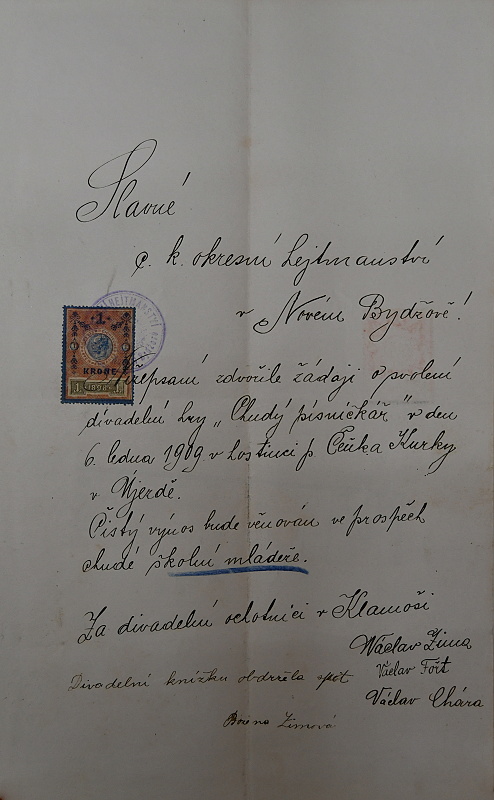 Slavné
c. k. okresní hejtmanství
v Novém Bydžově!
HEJTMANSTVÍ
1
KRONE
1 1898 1
Nížepsaní zdvořile žádají o svolení
divadelní hry „Chudý písničkář" v den
6. ledna 1909 v hostinci p. Čeňka Kurky
v Njerdě.
Čistý výnos bude věnován ve prospěch
chudé školní mládeže.
Za divadelní ochotníci v Klamoši
Wáclav Zima
Václav Fořt
Václav Chára
Divadelní knížku obdržela zpět
Božena Zimová